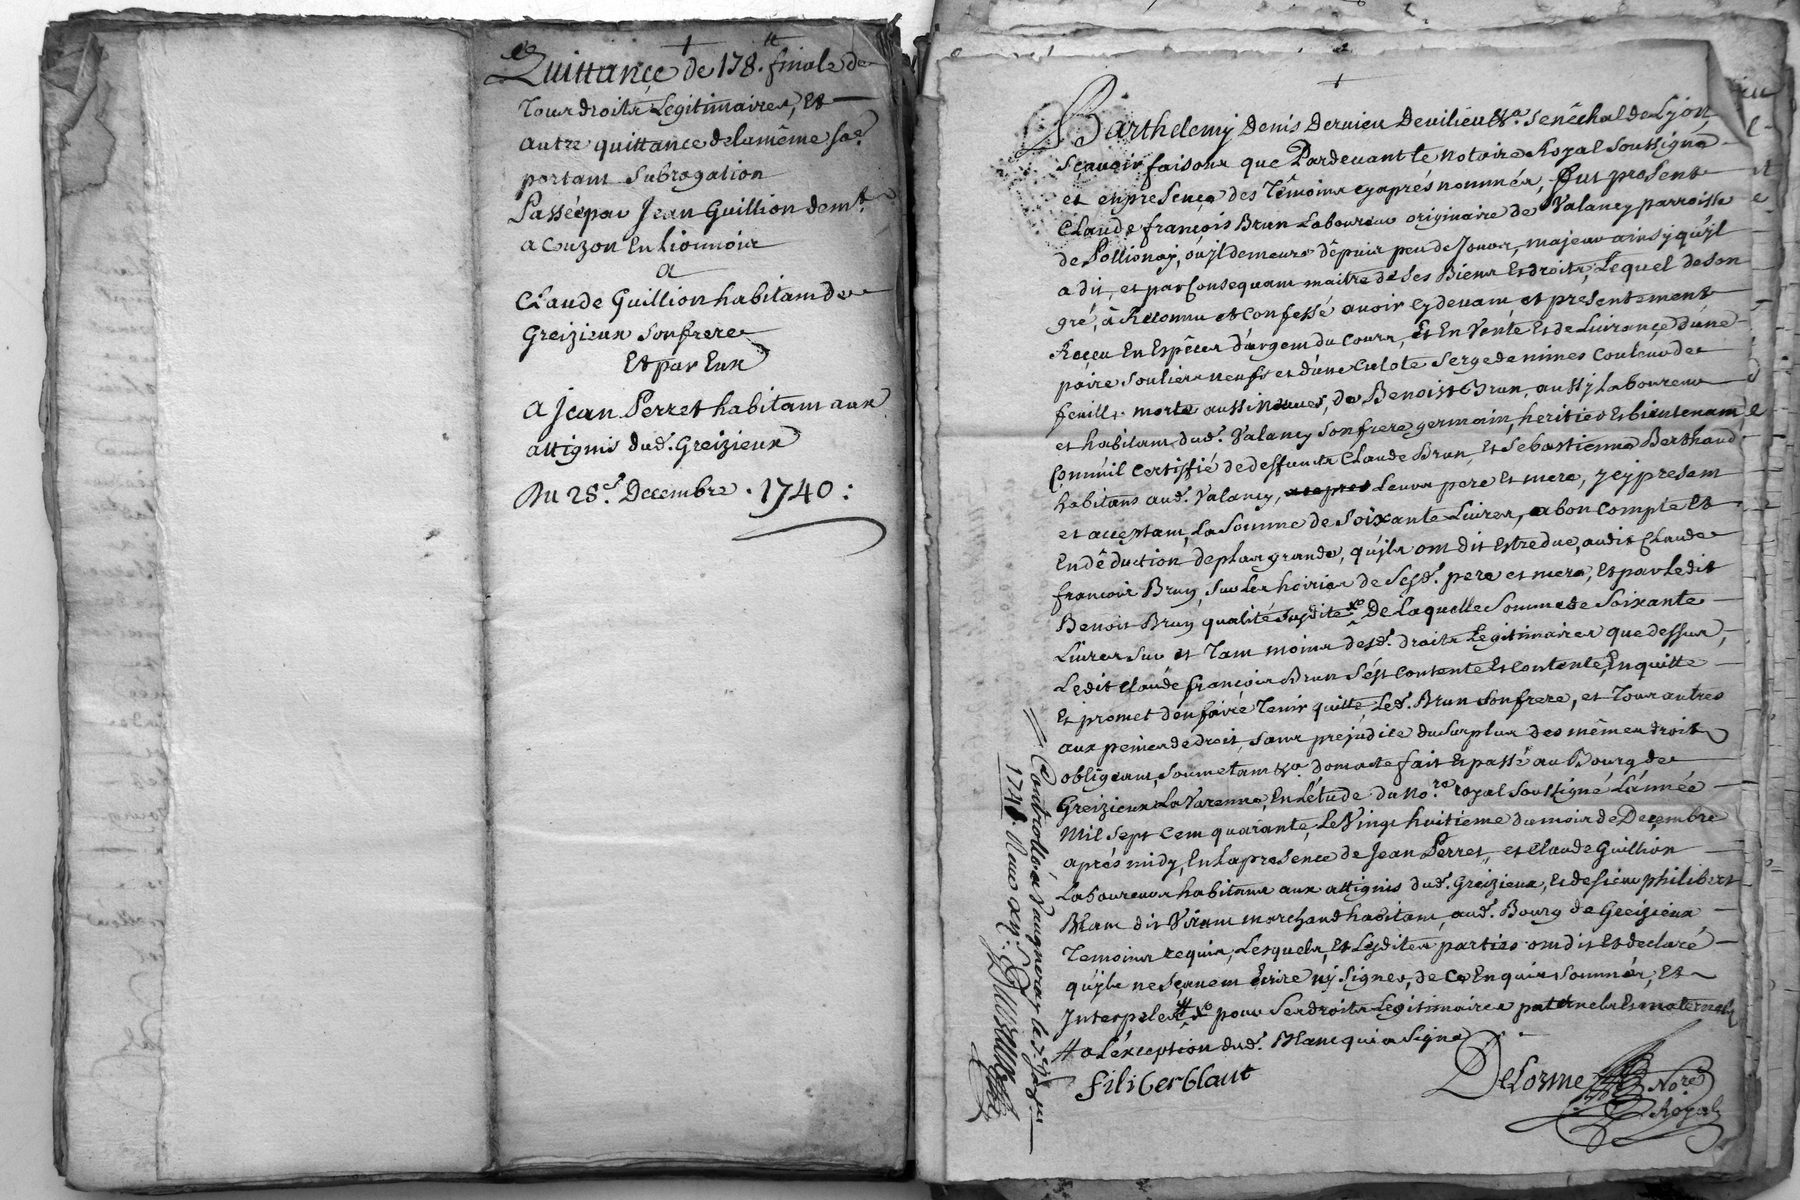 Quittance de 178.ᵗᵗ finale de
Tous droits Legitimaires, Et
autre quittance de la même Soe.
portant Subrogation
Passée par Jean Guillion demt.
a Couzon en Lionnois
a
Claude Guillion habitant de
Greizieux Son frere
Et par Eux
a Jean Perret habitant aux
attignis dud. Greizieux
Du 28.e Decembre . 1740 :
Barthelemy Denis Dervieu Devilieu &a. Senêchal de Lyon,
Sçavoir faisons que Pardevant le Notaire Royal Soussigné
et en presence des Têmoins cy aprés nommés, fut present
Claude françois Brun Laboureur originaire de Valancy parroisse
de Pollionay, où jl demeure dêpuis peu de Jours, majeur ainsy qu'jl
a dit, et par Consequant maitre de Ses Biens Et droits, Lequel de Son
gré, à Reconnu et Confessé avoir cy devant et presentement
Reçeu En Espêces d'argent du Cours, Et En Vente Et delivrançe d'une
paire Souliers neufs et d'une Culote Serge de nimes Couleur de
feuille morte aussi neuves, de Benoist Brun, aussy Laboureur
et habitant dud. Valancy Son frere germain, heritier Et bientenant
Comm̃il certiffié de deffunts Claude Brun, Et Sebastienne Berthaud
habitans aud. Valancy, Leurs pere Et mere, jcy present
et acceptant, La Somme de Soixante Livres, a bon Compte Et
En dêduction de plus grande, qu'jls ont dit Estre due, audit Claude
françois Brun, Sur Les hoiries de Sesd. pere et mere, Et par Ledit
Benoit Brun qualité Susdite, De Laquelle Somme de Soixante
Livres Sur et Tant moins desd. droits Legitimaires que dessus,
Ledit Claude françois Brun S'est Contenté Et Contente, En quitte
Et promet d'en faire Tenir quitte, Led. Brun Son frere, et Tous autres
aux peines de droit, Sans prejudice du Surplus des mêmes droits
obligeant, Soumetant &a. dont acte fait Et passé au Bourg de
Greizieux La Varenne, En L'étude du No.re royal Soussigné L'année
Mil Sept Cent quarante, Le Vingt huitieme du mois de Decembre
aprés midy, En La presence de Jean Perret, et Claude Guillion
Laboureurs habitans aux attignis dud. Greizieux, Et de Sieur philibert
Blanc dit Vivant marchand habitant, aud. Bourg de Greizieux
Temoins requis, Lesquels, Et Lesdites parties ont dit Et declaré
qu'jls ne Sçavent Ecrire nj Signer, de Ce Enquis Sommés, Et
Interpelés pour Ses droits Legitimaires paternels Et maternels
a L'exception dud. Blanc qui a Signé
filiberblant
DeLorme Nore.
Royal
Controllé a Vaugneray le
1741. Reçu